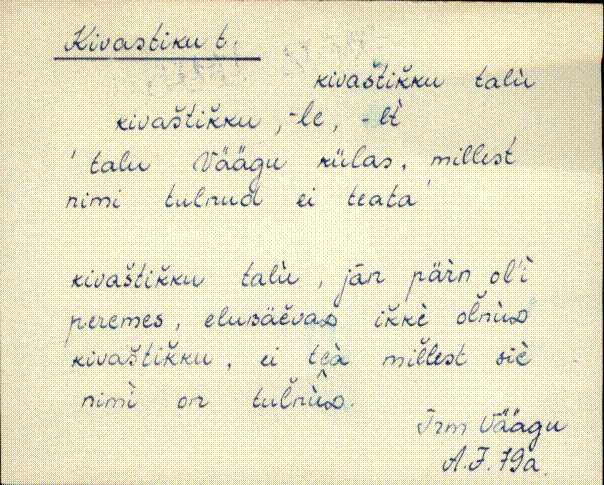 Kivastiku t.
kivaštikku talù
kivaštikku, -le, -lt̀
'talu Väägu külas, millest
nimi tulnud ei teata'
kivaštikku talù, jān pärn ol'ì
peremes, elusäěvas ikkè olnùs
kivaštikku, ei teà millest siè
nimì on tulnùs.
Irm Väägu
A.J. 79a.